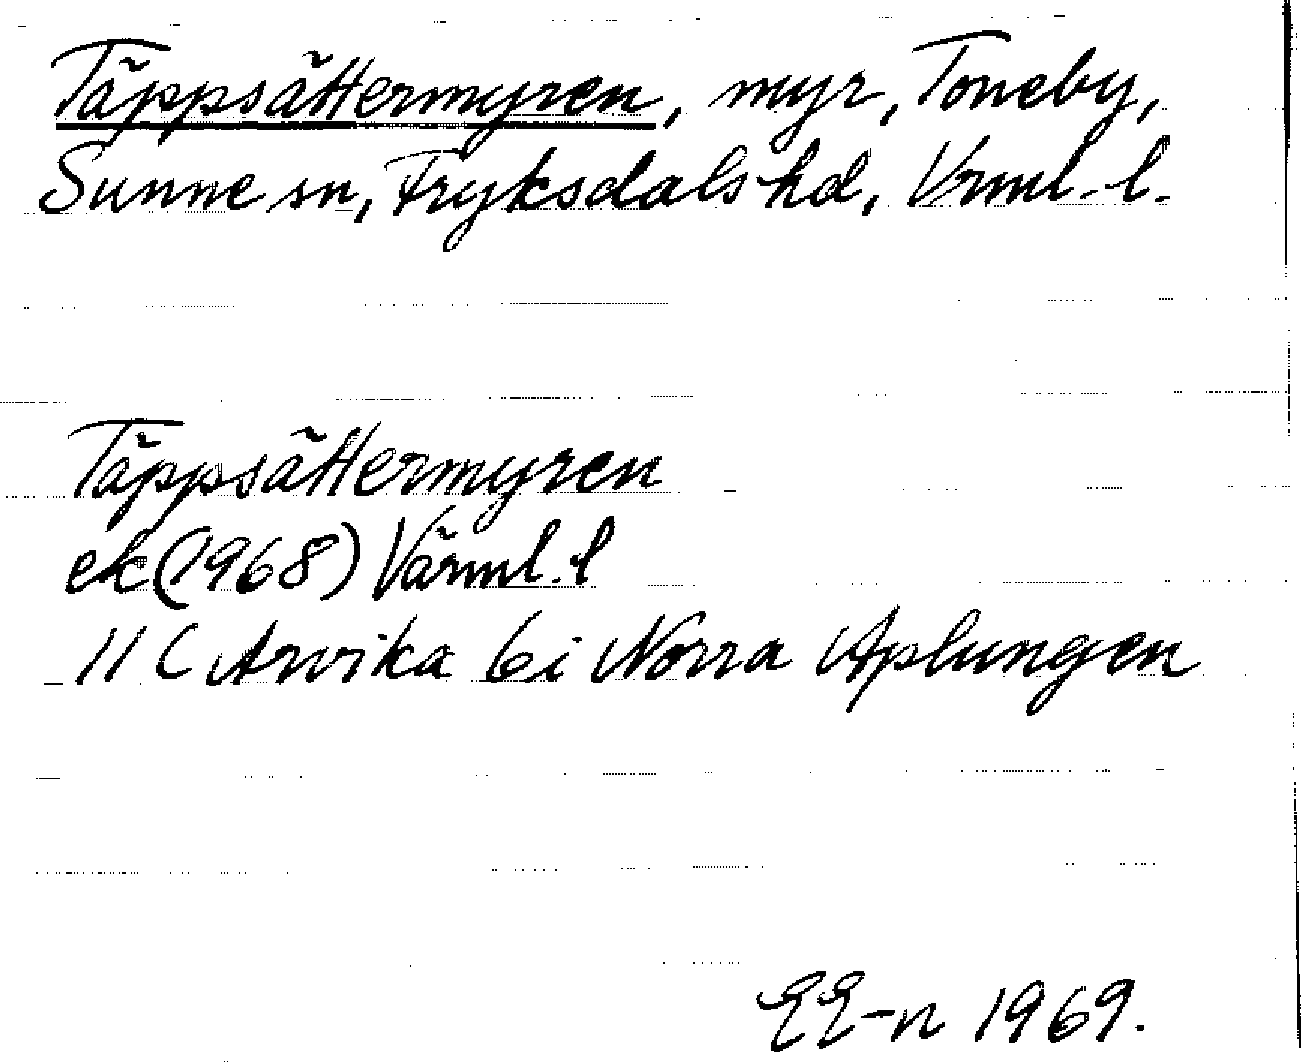 Täppsättermyren, myr, Toneby,
Sunne sn, Fryksdals hd, Vrml. l.
Täppsättermyren
ek (1968) Värml. l
11 C Arvika 6i Norra Aplungen
EE-n 1969.